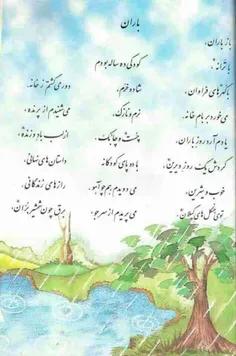 باران
باز باران،
با ترانه،
با گهرهای فراوان،
می خورد بر بام خانه.
یادم آرد روز باران،
گردش یک روز دیرین،
خوب و شیرین،
توی جنگل های گیلان.
کودکی ده ساله بودم
شاد و خرم،
نرم و نازک،
چست و چابک،
با دو پای کودکانه
می دویدم هم چو آهو،
می پریدم از سر جو،
دور می گشتم ز خانه.
می شنیدم از پرنده،
از لب باد وزنده،
داستان های نهانی،
رازهای زندگانی،
برق چون شمشیر بران،